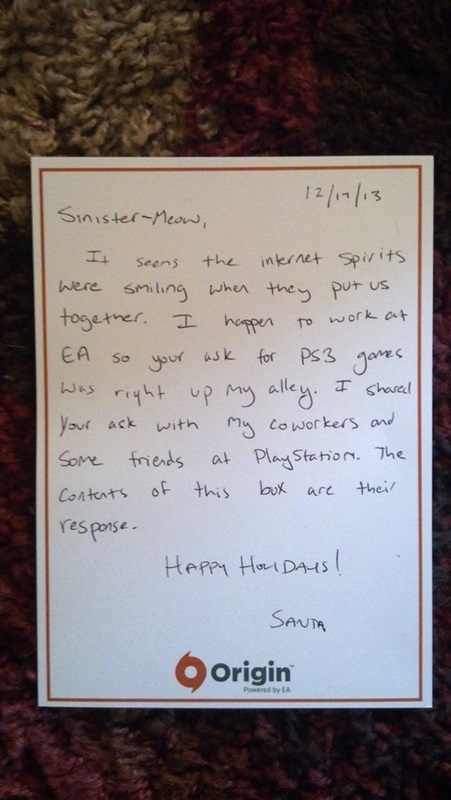 12/17/13
Sinister-Meow,
It seems the internet spirits
were smiling when they put us
together. I happen to work at
EA so your ask for PS3 games
was right up my alley. I shared
your ask with my coworkers and
some friends at PlayStation. The
contents of this box are their
response.
HAPPY HOLIDAYS!
SANTA
Origin™
Powered by EA